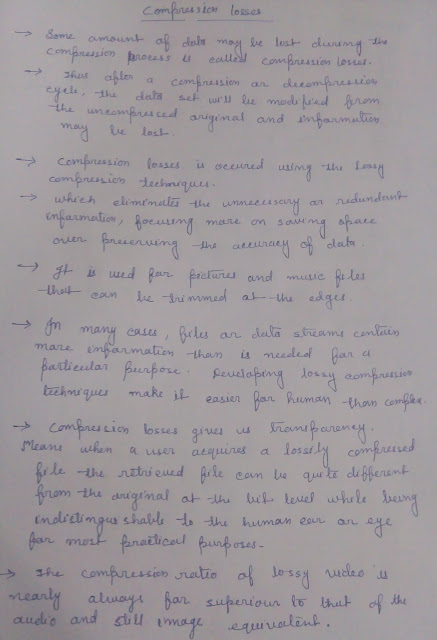 Compression losses
→ Some amount of data may be lost during the
compression process is called compression losses.
→ Thus after a compression or decompression
cycle, the data set will be modified from
the uncompressed original and information
may be lost.
→ Compression losses is occured using the lossy
compression techniques.
→ which eliminates the unnecessary or redundant
information, focusing more on saving space
over preserving the accuracy of data.
→ It is used for pictures and music files
that can be trimmed at the edges.
→ In many cases, files or data streams contain
more information than is needed for a
particular purpose. Developing lossy compression
techniques make it easier for human than complex.
→ Compression losses gives us transparency.
Means when a user acquires a lossily compressed
file the retrieved file can be quite different
from the original at the bit level while being
indistinguishable to the human ear or eye
for most practical purposes.
→ The compression ratio of lossy video is
nearly always far superious to that of the
audio and still image equivalent.